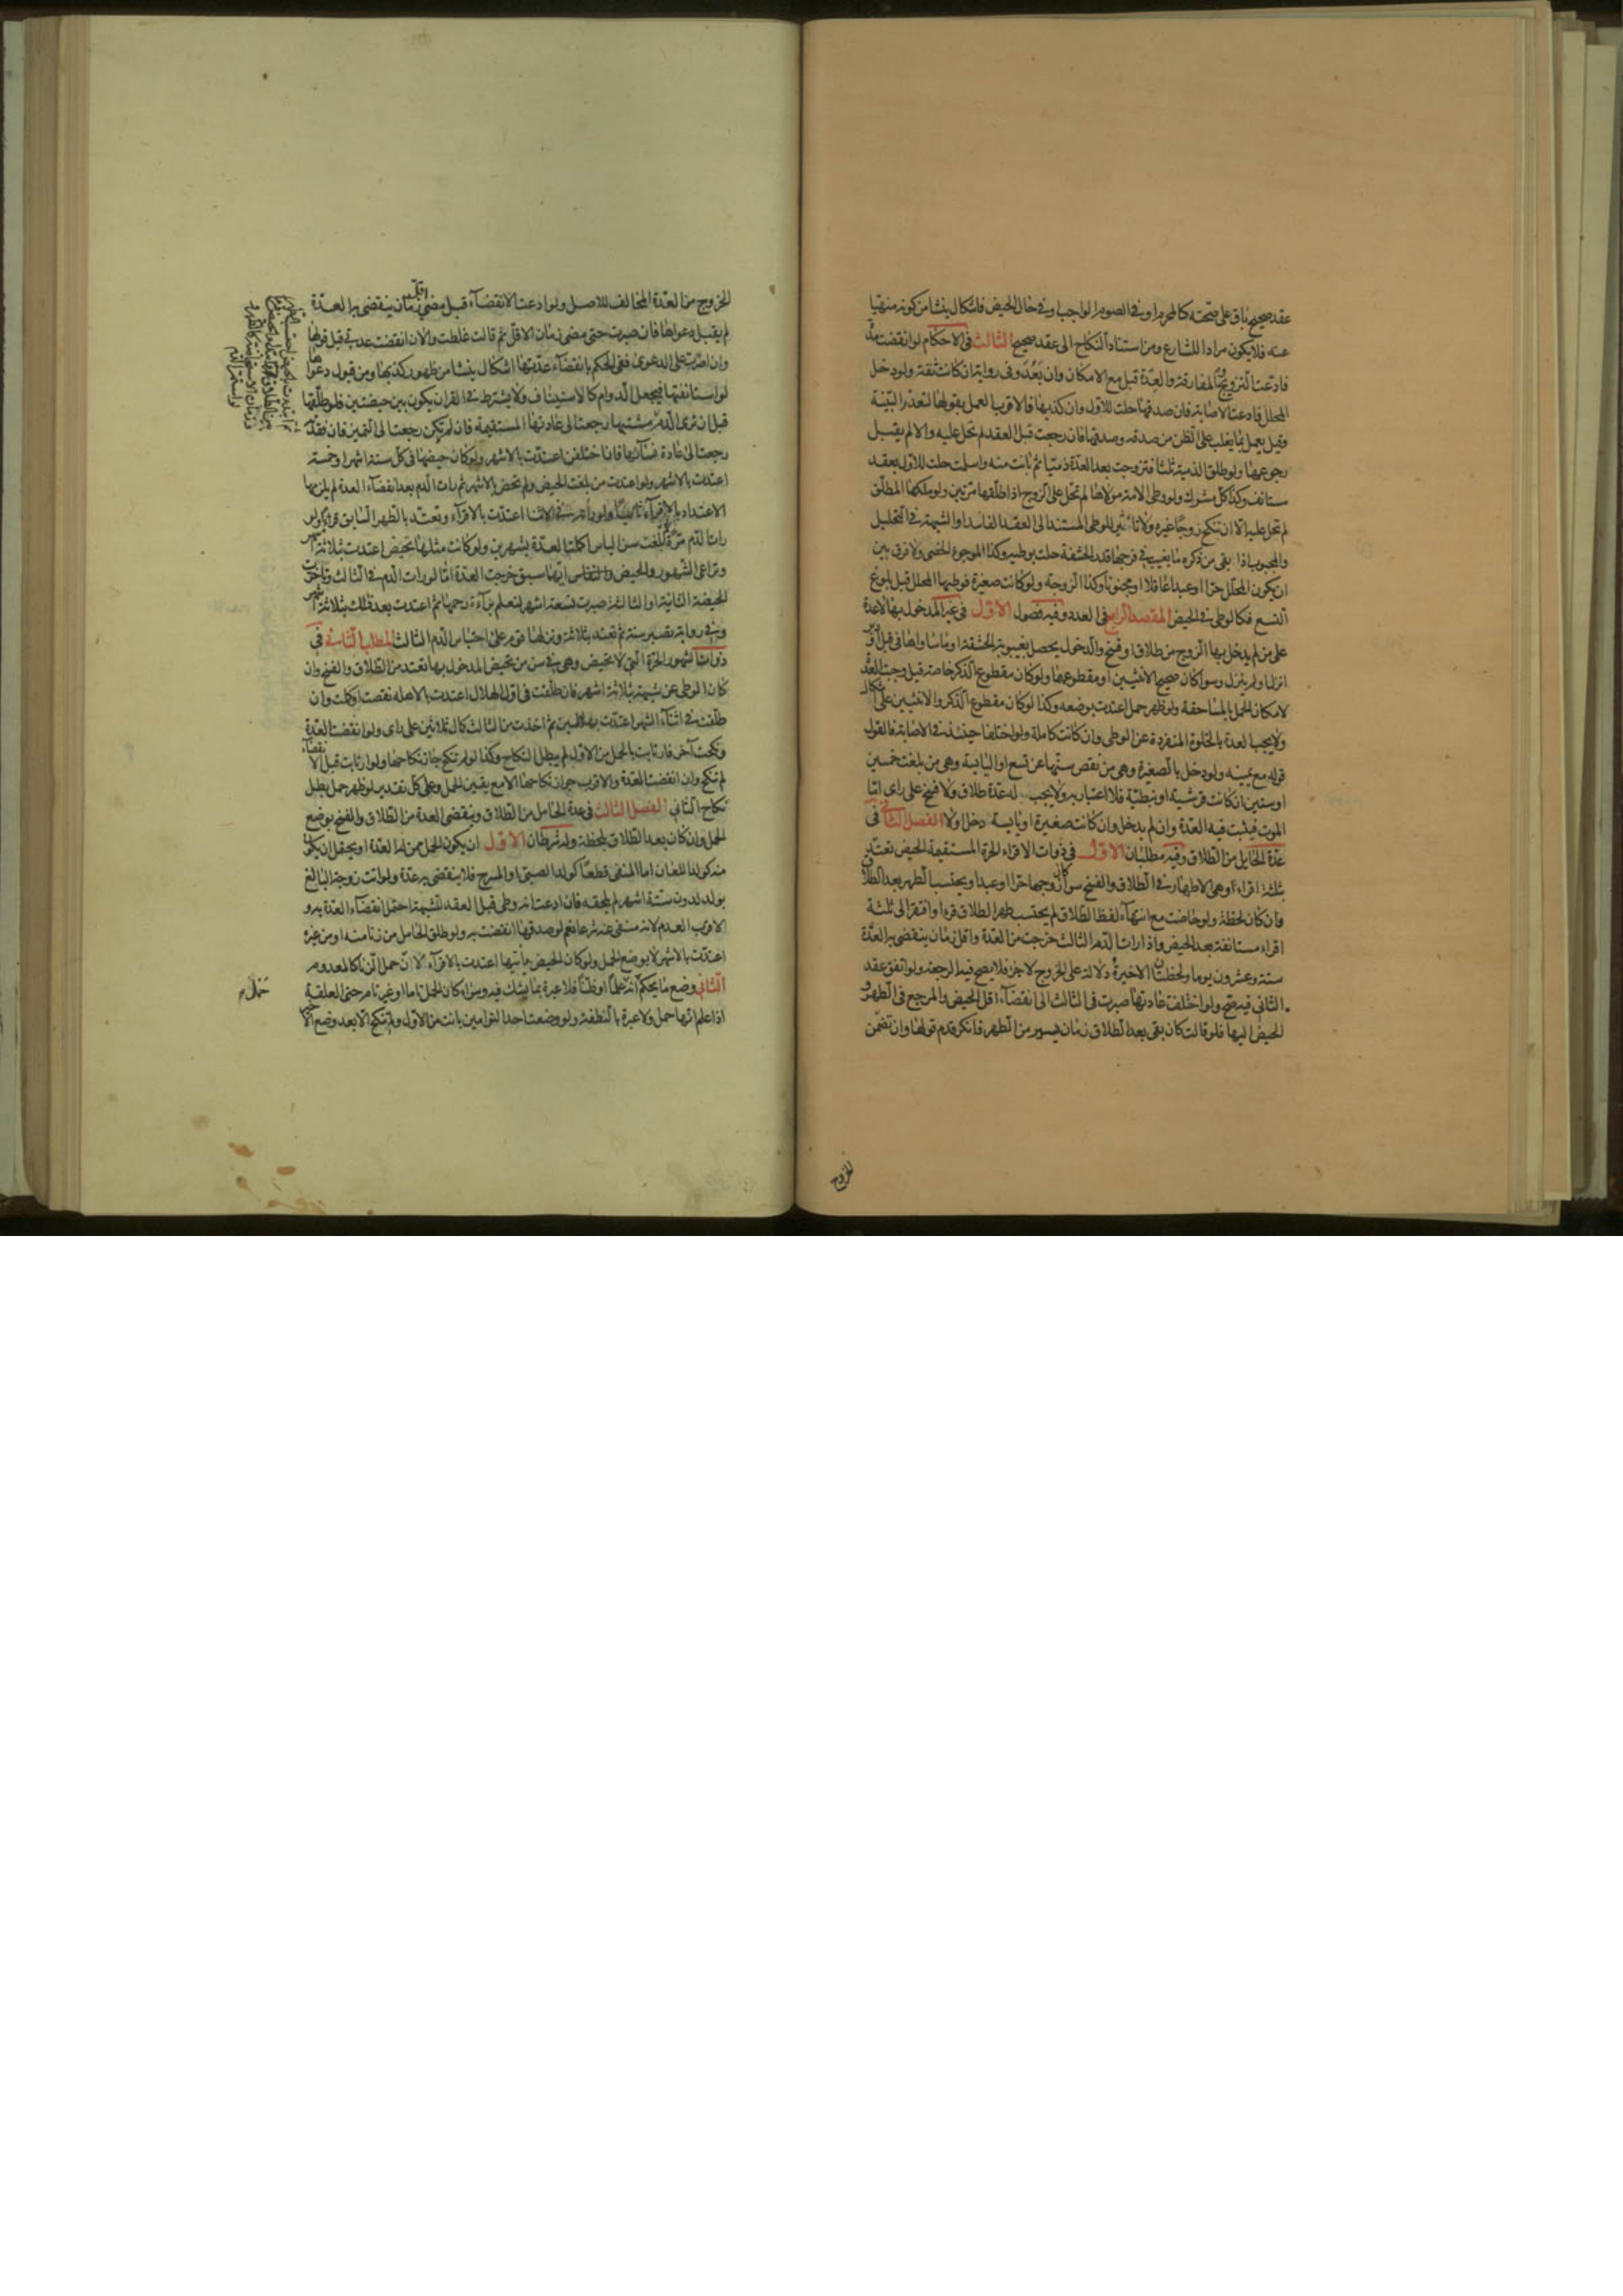 عقد صحيح باق على صحته كالمحرم او في الصوم الواجب او في حال الحيض فاشكال ينشأ من كونه منهيا
عنه فلا يكون مرادا للشارع ومن استناد النكاح الى عقد صحيح الثالث في الاحكام لو انقضت مدة
فادعت التزويج والمفارقة والعدة قبل مع الامكان وان بعد وفي رواية ان كانت ثقة ولو دخل
المحلل فادعت الاصابة فان صدقها حلت للاول وان كذبها فالاقرب العمل بقولها لتعذر البينة
وقيل يعمل بما يغلب على الظن من صدقه وصدقها فان رجعت قبل العقد لم تحل عليه والا لم يقبل
رجوعها ولو طلق الذمية ثلثا فتزوجت بعد العدة ذميا ثم بانت منه واسلمت حلت للاول بعقد
مستانف وكذا كل مشرك ولو وطى الامة مولاها لم تحل على الزوج اذا طلقها مرتين ولو ملكها المطلق
لم تحل عليه الا ان تنكح زوجا غيره ولا تاثير للوطى المستند الى العقد الفاسد او الشبهة في التحليل
والمجبوب اذا بقى من ذكره ما يغيب في فرجها قدر الحشفة حلت بوطيه وكذا الموجوء الخصى ولا فرق بين
ان يكون المحلل حرا او عبدا عاقلا او مجنونا وكذا الزوجة ولو كانت صغيرة فوطيها المحلل قبل بلوغ
التسع فكالوطى في الحيض المقصد الرابع في العدد وفيه فصول الاول في غير المدخول بها لا عدة
على من لم يدخل بها الزوج من طلاق او فسخ والدخول يحصل بغيبوبة الحشفة او ما ساواها في قبل او دبر
انزل او لم ينزل وسوا كان صحيح الانثيين او مقطوعهما ولو كان مقطوع الذكر خاصة قيل وجبت العدة
لامكان الحمل بالمساحقة ولو ظهر حمل اعتدت بوضعه وكذا لو كان مقطوع الذكر والانثيين على اشكال
ولا يجب العدة بالخلوة المنفردة عن الوطى وان كانت كاملة ولو اختلفا حينئذ في الاصابة فالقول
قوله مع يمينه ولو دخل بالصغيرة وهي من نقص سنها عن تسع او اليائسة وهي من بلغت خمسين
او ستين ان كانت قرشية او نبطية فلا اعتبار به ولا يجب له عدة طلاق ولا فسخ على راى اما
الموت فيثبت فيه العدة وان لم يدخل وان كانت صغيرة او يائسة دخل او لا الفصل الثانى في
عدة الحايل من الطلاق وفيه مطلبان الاول في ذوات الاقراء الحرة المستقيمة الحيض تعتد
بثلثة اقراء وهي الاطهار في الطلاق والفسخ سوا كان زوجها حرا او عبدا ويحتسب الطهر بعد الطلاق
فان كان لحظة ولو حاضت مع انتهاء لفظ الطلاق لم يحتسب طهر الطلاق قرءا وافتقر الى ثلثة
اقراء مستانفة بعد الحيض واذا رات الدم الثالث خرجت من العدة واقل زمان ينقضى به العدة
ستة وعشرون يوما ولحظتان الاخيرة دلالة على الخروج لا جزء فلا يصح فيه الرجعة ولو اتفق عقد
الثاني فيه صح ولو اختلفت عادتها صبرت في الثالث الى انقضاء اقل الحيض والمرجع في الطهر و
الحيض اليها فلو قالت كان بقى بعد الطلاق زمان يسير من الطهر فانكر قدم قولها وان تضمن
للخروج
الخروج من العدة المخالف للاصل ولو ادعت الانقضاء قبل مضى اقل زمان ينقضى به العدة
لم يقبل دعواها فان صبرت حتى مضى زمان الاقل ثم قالت غلطت والان انقضت عدتي قبل قولها
وان اصرت على الدعوى ففي الحكم بانقضاء عدتها اشكال ينشأ من ظهور كذبها ومن قبول دعواها
لو استانفتها فيجعل الدوام كالاستيناف ولا يشترط في القران يكون بين حيضتين فلو طلقها
قبل ان ترى الدم مشتبها رجعت الى عادتها المستقيمة فان لم تكن رجعت الى التميز فان فقد
رجعت الى عادة نسائها فان اختلفن اعتدت بالاشهر ولو كان حيضها في كل ستة اشهر او خمسة
اعتدت بالاشهر ولو اعتدت من بلغت الحيض ولم تحض بالاشهر ثم رات الدم بعد انقضاء العدة لم يلزمها
الاعتداد بالاقراء ثانيا ولو راته في الاثنا اعتدت بالاقراء وتعتد بالطهر السابق قرءا ولو
رات الدم مرة ثم بلغت سن الياس اكملت العدة بشهرين ولو كانت مثلها تحيض اعتدت بثلاثة اشهر
وتراعى الشهور والحيض والنفاس ايهما سبق خرجت العدة اما لو رات الدم في الثالث وتاخرت
الحيضة الثانية او الثالثة صبرت تسعة اشهر لتعلم براءة رحمها ثم اعتدت بعد ذلك بثلاثة اشهر
وفي رواية تصبر سنة ثم تعتد بثلاثة ونزلها قوم على احتباس الدم الثالث المطلب الثاني في
ذوات الشهور الحرة التي لا تحيض وهي في سن من تحيض المدخول بها تعتد من الطلاق والفسخ وان
كان الوطى عن شبهة بثلاثة اشهر فان طلقت في اول الهلال اعتدت بالاهلة نقصت او كملت وان
طلقت في اثناء الشهر اعتدت بهلالين ثم اخذت من الثالث كمال ثلاثين على راى ولو انقضت العدة
ونكحت آخر فارتابت بالحمل من الاول لم يبطل النكاح وكذا لو لم تنكح جاز نكاحها ولو ارتابت قبل الانقضاء
لم تنكح وان انقضت العدة والاقرب جواز نكاحها الا مع يقين الحمل وعلى كل تقدير لو ظهر حمل بطل
نكاح الثاني الفصل الثالث في عدة الحامل من الطلاق وينقضى العدة من الطلاق والفسخ بوضع
الحمل وان كان بعد الطلاق بلحظة وله شرطان الاول ان يكون الحمل ممن له العدة او يحتمل ان يكون
منه كولد اللعان اما المنفى قطعا كولد الصبى او المسرح فلا ينقضى به عدة ولو اتت زوجة البالغ
بولد لدون ستة اشهر لم يلحقه فان ادعت انه وطى قبل العقد للشبهة احتمل انقضاء العدة به و
الاقرب العدم لانه منفى عنه شرعا نعم لو صدقها انقضت به ولو طلق الحامل من زنا منه او من غيره
اعتدت بالاشهر لا بوضع الحمل ولو كان الحيض ياتيها اعتدت بالاقراء لان حمل الزنا كالمعدوم
الثاني وضع ما يحكم انه حمل علما او ظنا فلا عبرة بما يشك فيه وسواء كان الحمل تاما او غير تام حتى العلقة
اذا علم انها حمل ولا عبرة بالنطفة ولو وضعت احد التوامين بانت من الاول ولم تنكح الا بعد وضع الآخر
حمل
واستمر الدم